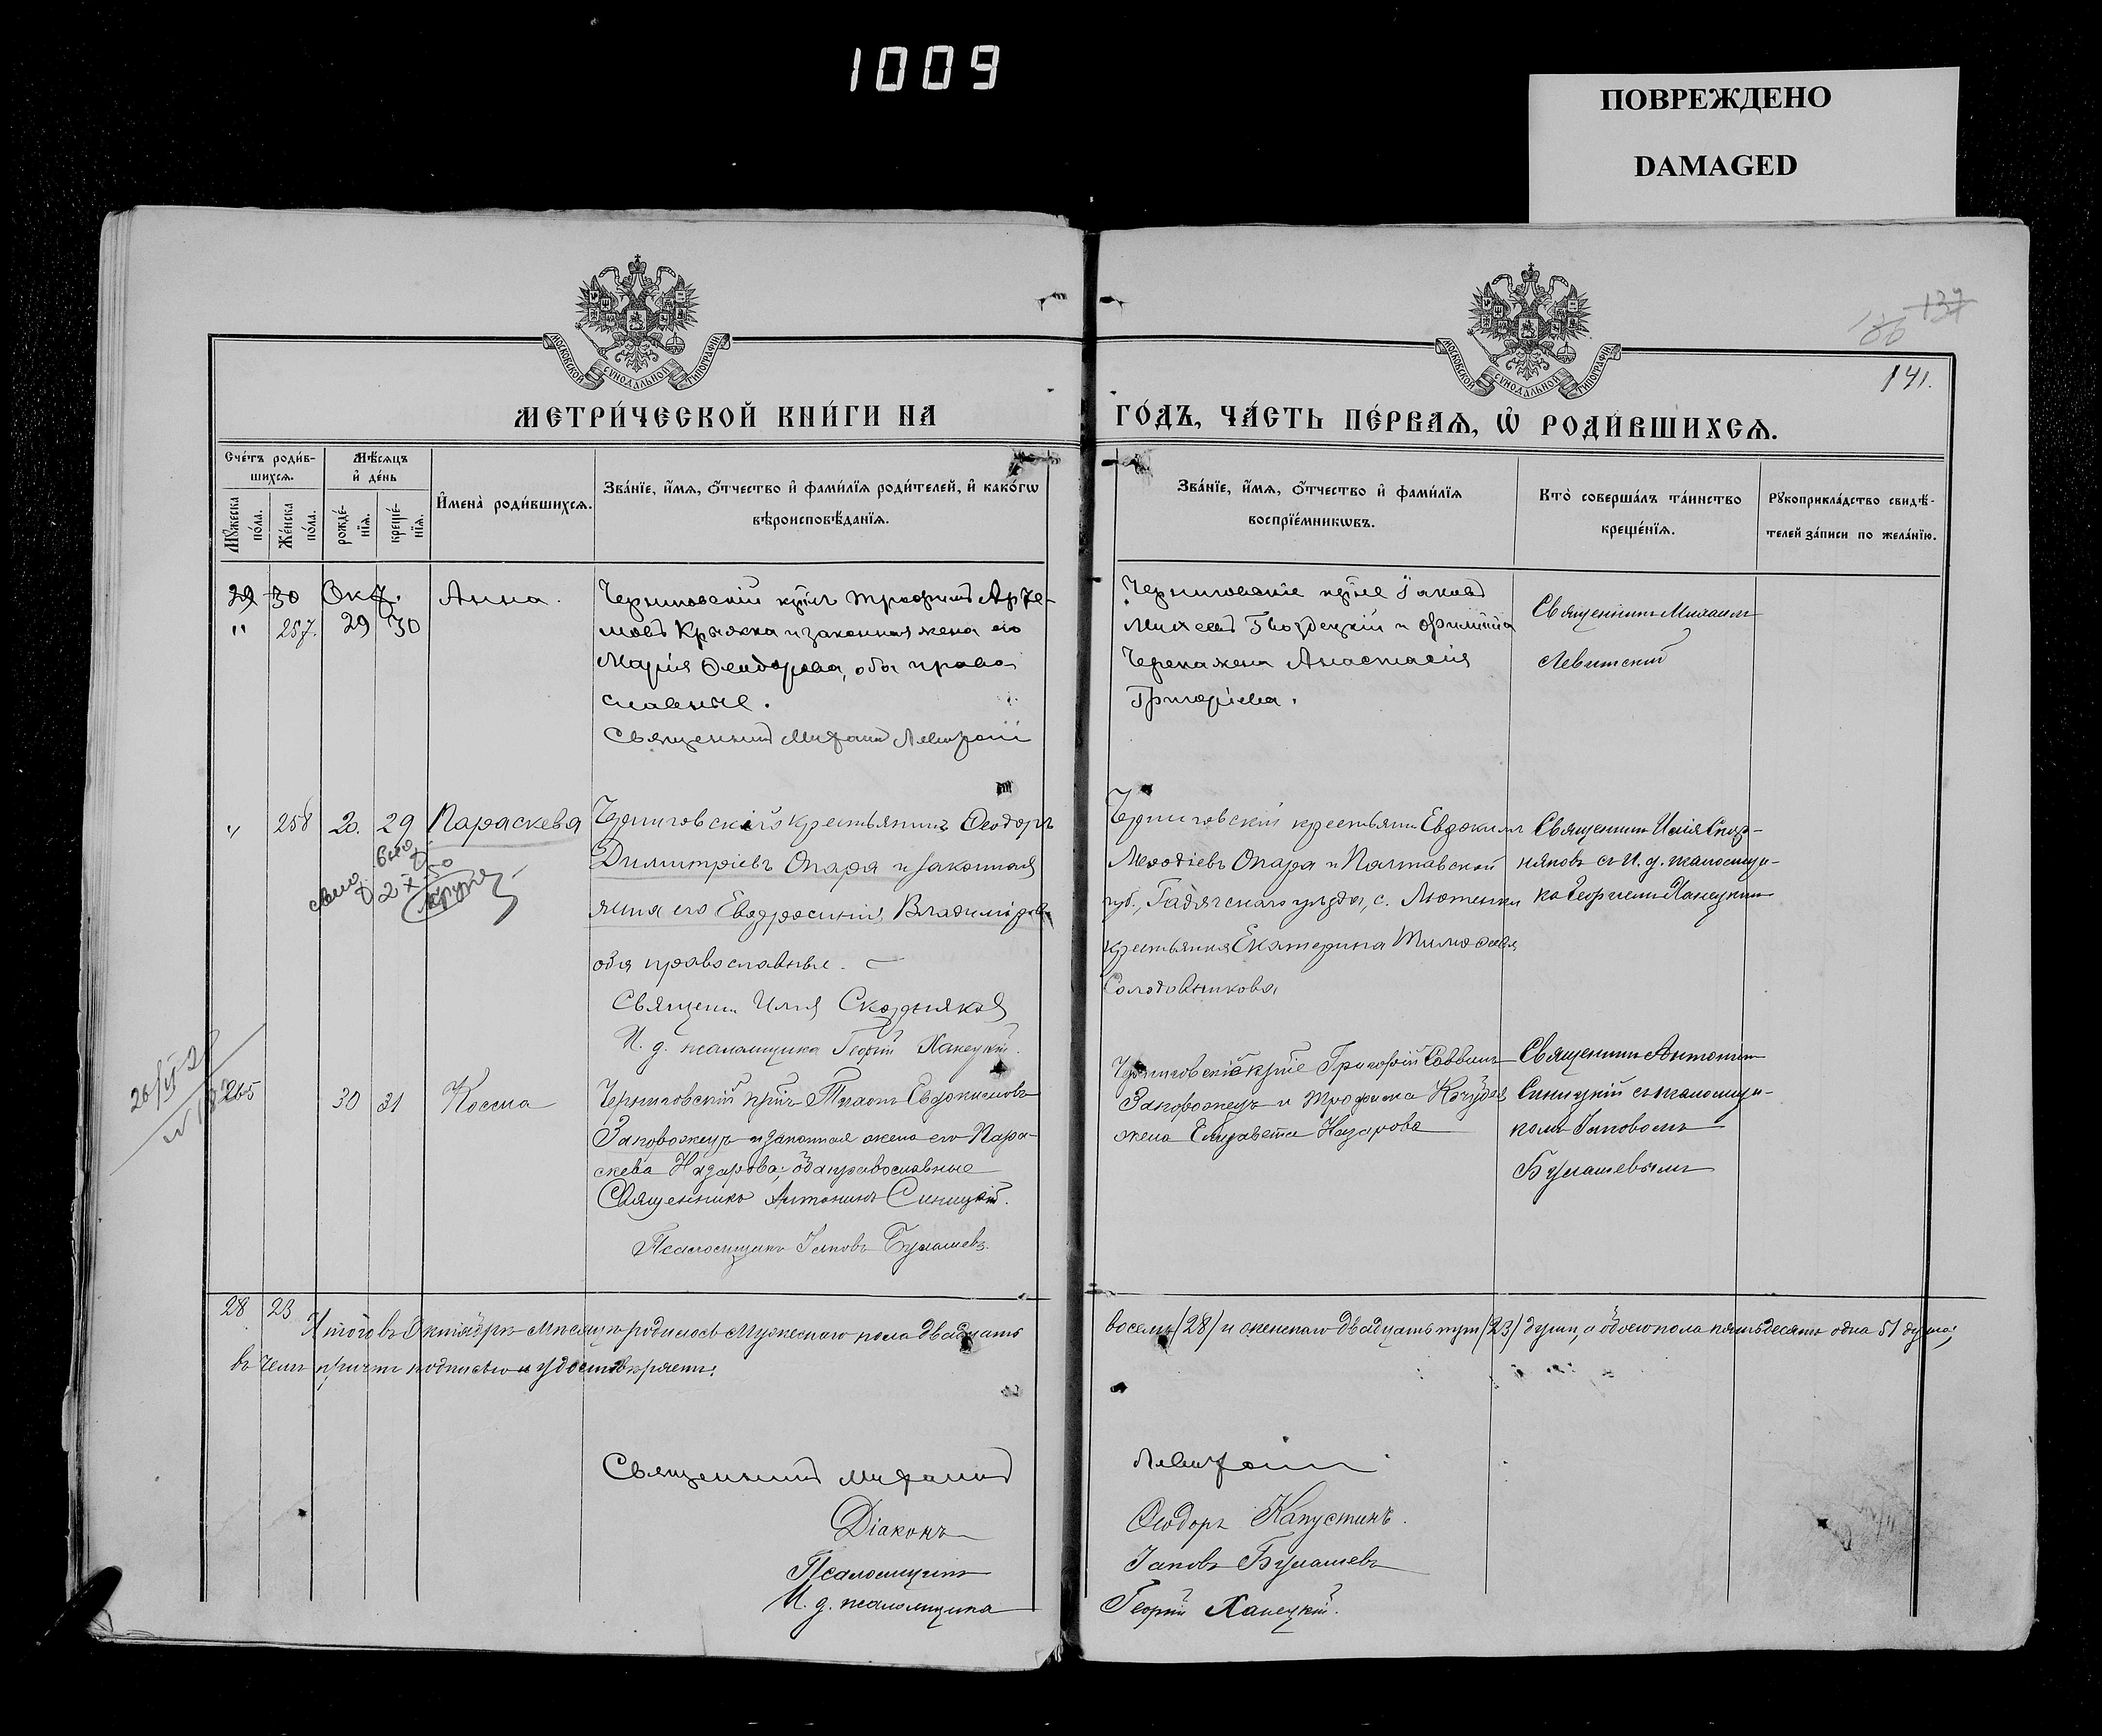 1009
ПОВРЕЖДЕНО
DAMAGED
МОСКОВСКОЙ СѴНОДАЛЬНОЙ ТИПОГРАФІИ
МОСКОВСКОЙ СѴНОДАЛЬНОЙ ТИПОГРАФІИ
137
141.
МЕТРИ́ЧЕСКОЙ КНИ́ГИ НА
ГО́ДЪ, ЧА́СТЬ ПЕ́РВАѦ, Ѡ҆ РОДИ́ВШИХСѦ.
Сче́тъ роди́в-
шихсѧ.
Мꙋ́жеска
по́ла.
Же́нска
по́ла.
Мѣ́сѧцъ
и҆ де́нь
рожде́-
нїѧ.
креще́-
нїѧ.
И҆мена̀ роди́вшихсѧ.
Зва́нїе, и҆́мѧ, ѻ҆́тчество и҆ фами́лїѧ роди́телей, и҆ како́гѡ
вѣроисповѣ́данїѧ.
Зва́нїе, и҆́мѧ, ѻ҆́тчество и҆ фами́лїѧ
воспрїе́мникѡвъ.
Кто̀ соверша́лъ та́инство
креще́нїѧ.
Рꙋкоприкла́дство свидѣ́-
телей за́писи по жела́нїю.
29 30 Окт.
" 257. 29 30
Анна.
Черниговскій крнъ Трофимъ Арте-
мовъ Кряжка и законная жена его
Марія Ѳеодорова, оба право
славные.
Священникъ Михаилъ Левитскій
Черниговскіе крне Іаковъ
Гвоздецкій и
жена Анастасія
Григоріева.
Священникъ Михаилъ
Левитскій
" 258 20. 29 Параскева
Черниговскій крестьянинъ Ѳеодоръ
Димитріевъ Опара и законная
жена его Евфросинія Владимірова
оба православные.
Священ. Илія Скорняковъ
И. д. псаломщика Георгій Ханецкій.
Черниговскій крестьянин Евдоким
Меѳодіевъ Опара и Полтавской
губ., Гадячскаго уѣзда, с. Лютенки
крестьянка Екатерина Тимоѳеева
Солодовникова
Священник Илія Скор-
няковъ съ И. д. псаломщи-
ка Георгіемъ Ханецкимъ
265 30 31 Косма
Черниговскій крнъ Тихонъ Евдокимовъ
Запорожецъ и законная жена его Пара-
скева Назарова; оба православные
Священникъ Антонинъ Синицкій.
Псаломщикъ Іаковъ Булашевъ.
Черниговскіе крне Григорій Саввинъ
Запорожецъ и Трофима
жена Елизавета Назарова
Священникъ Антонинъ
Синицкій съ псаломщи-
комъ Іаковомъ
Булашевымъ
28 23
Итого въ Октябрѣ мѣсяцѣ родилось мужескаго пола двадцать
восемь (28) и женскаго двадцать три (23) души, а обоего пола пятьдесятъ одна 51 душа;
въ чемъ причтъ подписью и удостовѣряетъ:
Священникъ Михаилъ Левитскій
Діаконъ Ѳеодоръ Капустинъ.
Псаломщикъ Іаковъ Булашевъ
И. д. псаломщика Георгій Ханецкій.